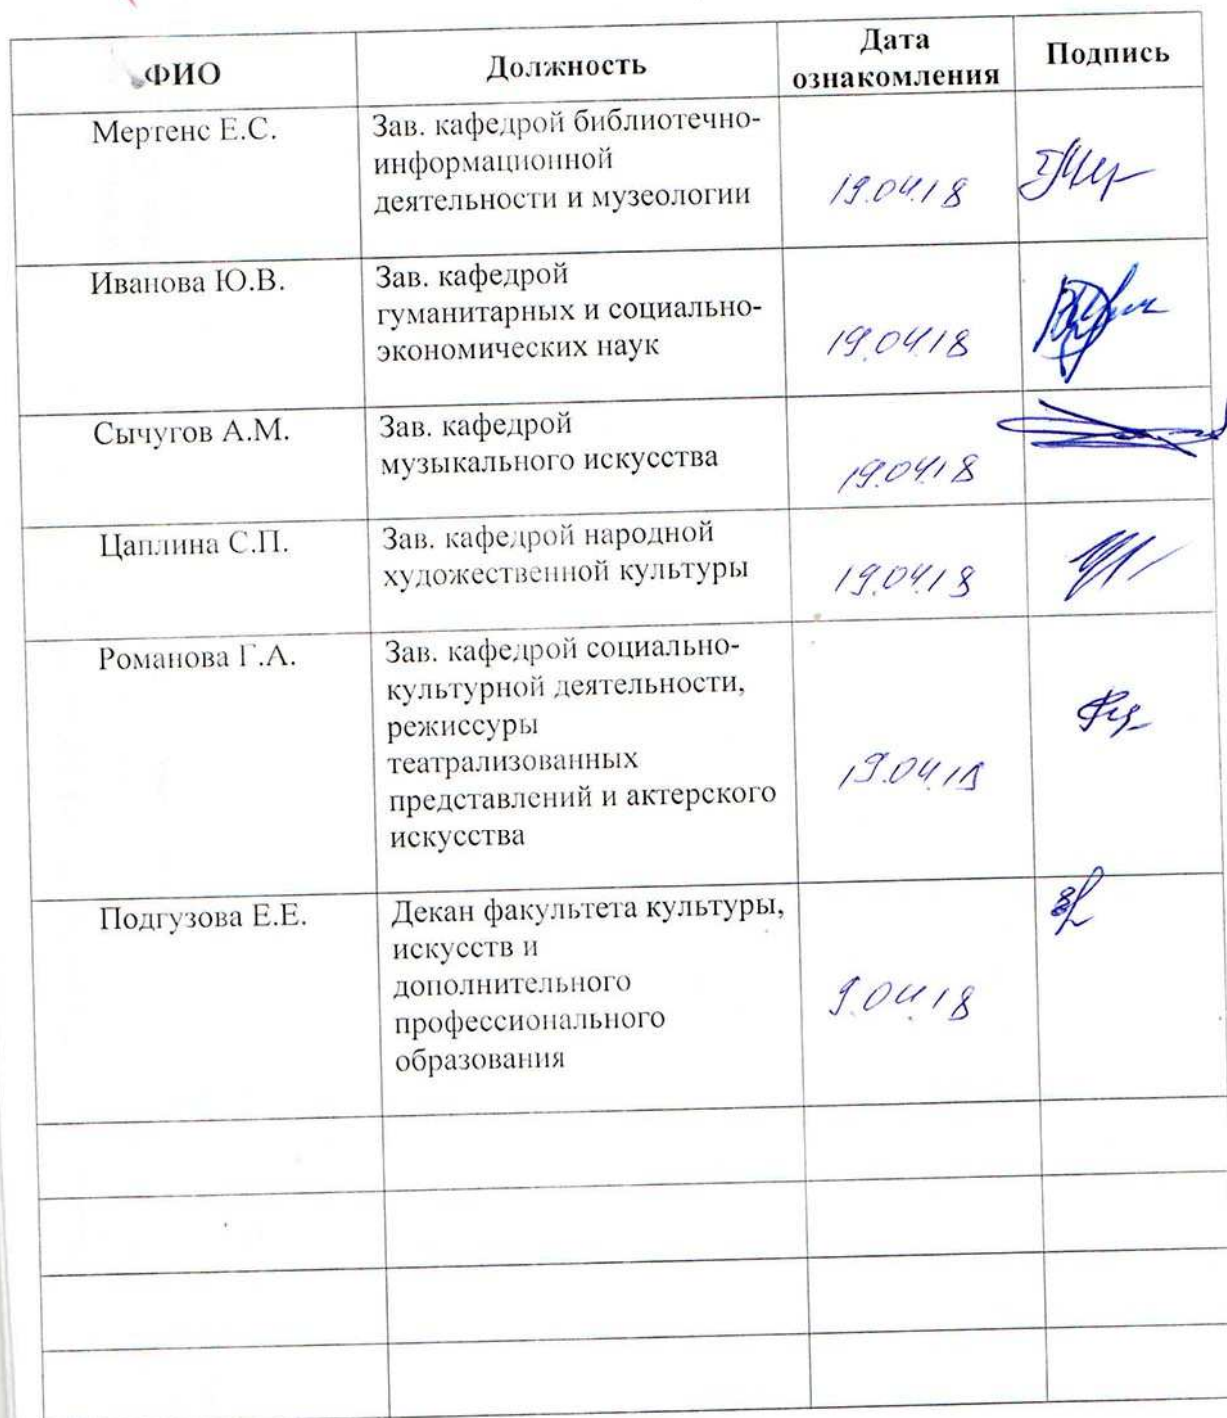 ФИО
Должность
Дата
ознакомления
Подпись
Мертенс Е.С.
Зав. кафедрой библиотечно-
информационной
деятельности и музеологии
19.04.18
Иванова Ю.В.
Зав. кафедрой
гуманитарных и социально-
экономических наук
19.04.18
Сычугов А.М.
Зав. кафедрой
музыкального искусства
19.04.18
Цаплина С.П.
Зав. кафедрой народной
художественной культуры
19.04.18
Романова Г.А.
Зав. кафедрой социально-
культурной деятельности,
режиссуры
театрализованных
представлений и актерского
искусства
19.04.18
Подгузова Е.Е.
Декан факультета культуры,
искусств и
дополнительного
профессионального
образования
9.04.18